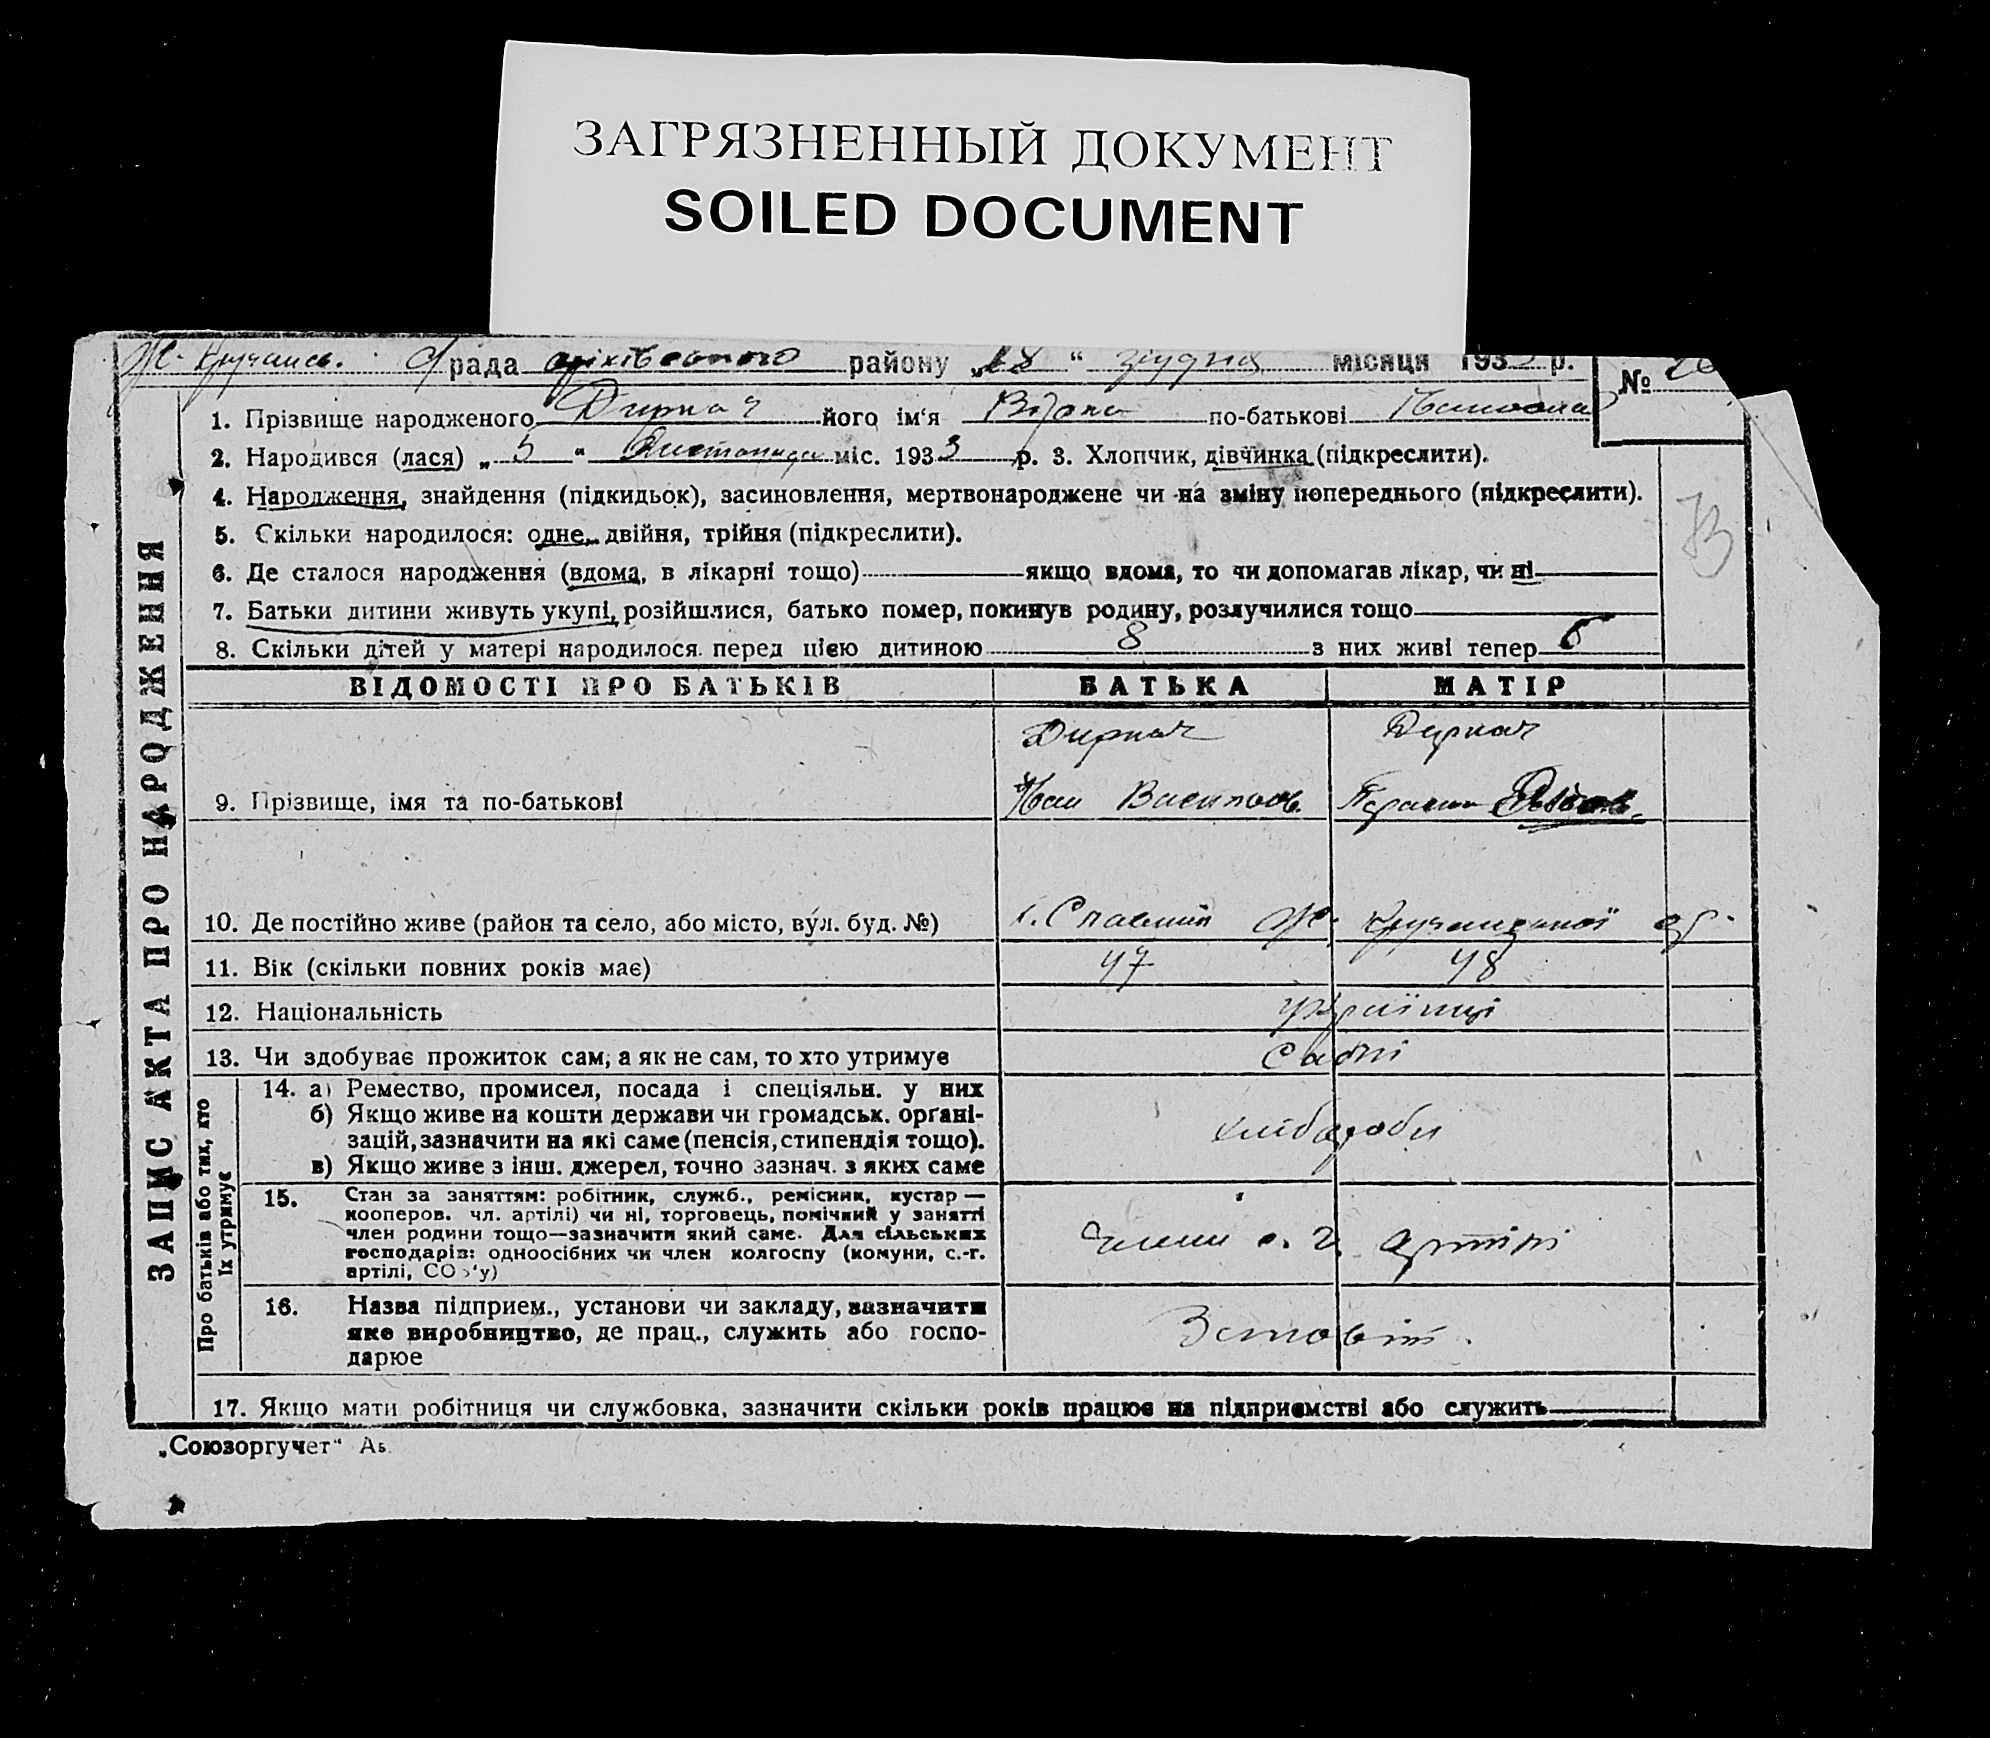 ЗАГРЯЗНЕННЫЙ ДОКУМЕНТ
SOILED DOCUMENT
рада району „18 “ грудня місяця 193 р. №
1. Прізвище народженого Диркач його ім‘я по-батькові
2. Народився (лася) „ 5 “ Листопада міс. 1933 р. 3. Хлопчик, дівчинка (підкреслити).
4. Народження, знайдення (підкидьок), засиновлення, мертвонароджене чи на зміну попереднього (підкреслити).
5. Скільки народилося: одне, двійня, трійня (підкреслити).
6. Де сталося народження (вдома, в лікарні тощо) якщо вдома, то чи допомагав лікар, чи ні
7. Батьки дитини живуть укупі, розійшлися, батько помер, покинув родину, розлучилися тощо
8. Скільки дітей у матері народилося перед цією дитиною 8 з них живі тепер
ЗАПИС АКТА ПРО НАРОДЖЕННЯ
ВІДОМОСТІ ПРО БАТЬКІВ БАТЬКА МАТІР
Диркач Диркач
9. Прізвище, імя та по-батькові Іван
10. Де постійно живе (район та село, або місто, вул. буд. №)
11. Вік (скільки повних років має) 47 48
12. Національність українці
13. Чи здобуває прожиток сам, а як не сам, то хто утримує Самі
Про батьків або тих, хто їх утримує
14. а) Ремество, промисел, посада і спеціяльн. у них
б) Якщо живе на кошти держави чи громадськ. орґані-
зацій, зазначити на які саме (пенсія, стипендія тощо).
в) Якщо живе з інш. джерел, точно зазнач. з яких саме
хлібороби
15. Стан за заняттям: робітник, служб., ремісник, кустар —
кооперов. чл. артілі) чи ні, торговець, помічний у занятті
член родини тощо—зазначити який саме. Для сільських
господарів: одноосібних чи член колгоспу (комуни, с.-г.
артілі, СО з‘у)
члени с. г. артілі
16. Назва підприєм., установи чи закладу, зазначити
яке виробництво, де прац., служить або госпо-
дарюе
17. Якщо мати робітниця чи службовка, зазначити скільки років працює на підприємстві або служить
„Союзоргучет“